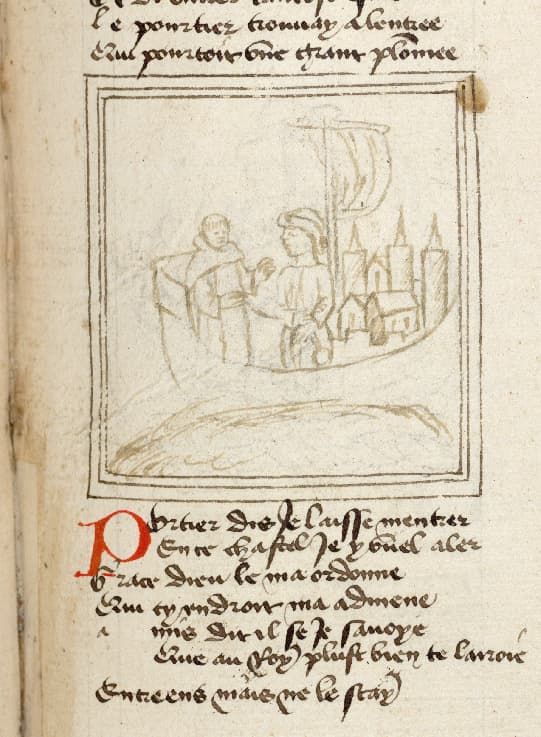 Le pourtier trouvay a lentree
Qui pourtoit vne grant plomee
Portier dis Je laisse mentrer
En ce chastel Je y vuel aler
Grace dieu le ma ordonne
Qui cy endroit ma admene
a mis dit il se Je sauoye
Que au Roy plust bien te lairoie
Entre ens mais ne le scay